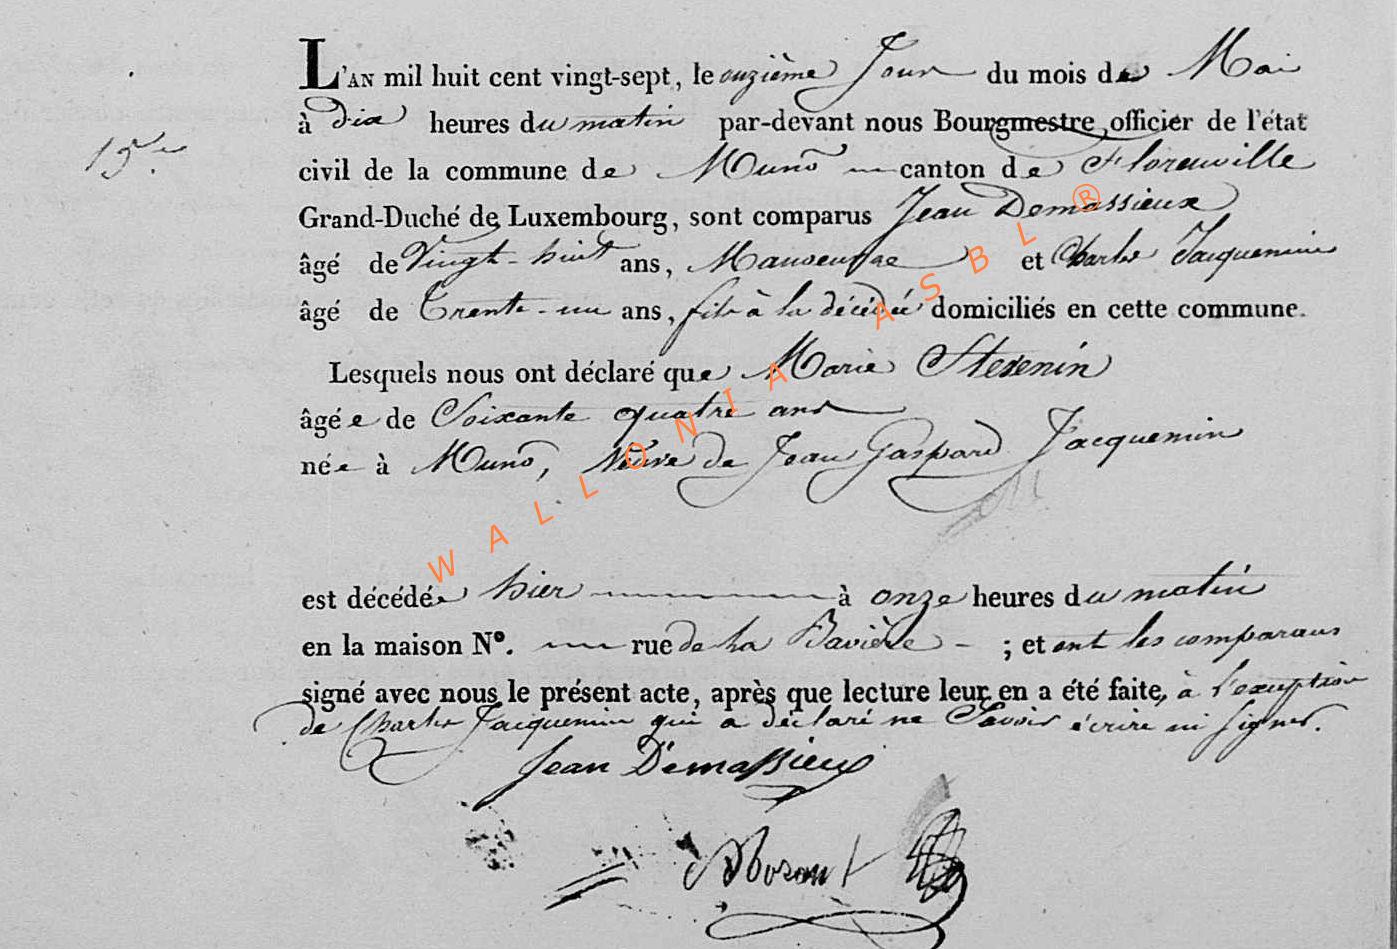 L'AN mil huit cent vingt-sept, le onzième Jour du mois de Mai
à dix heures du matin par-devant nous Bourgmestre officier de l'état
15.e
civil de la commune de Muno canton de Florenville
Grand-Duché de Luxembourg, sont comparus Jean Demassieux
âgé de Vingt-huit ans, Manoeuvre et Charles Jacquemin
âgé de Trente-un ans, fils à la décédée domiciliés en cette commune.
Lesquels nous ont déclaré que Marie Stevenin
âgée de Soixante quatre ans
née à Muno, Veuve de Jean Gaspard Jacquemin
est décédée hier à onze heures du matin
en la maison N°. rue de la Bavière - ; et ont les comparans
signé avec nous le présent acte, après que lecture leur en a été faite, à l'exception
de Charles Jacquemin qui a déclaré ne Savoir écrire ni signer.
Jean Demassieux
WALLONIA ASBL ®